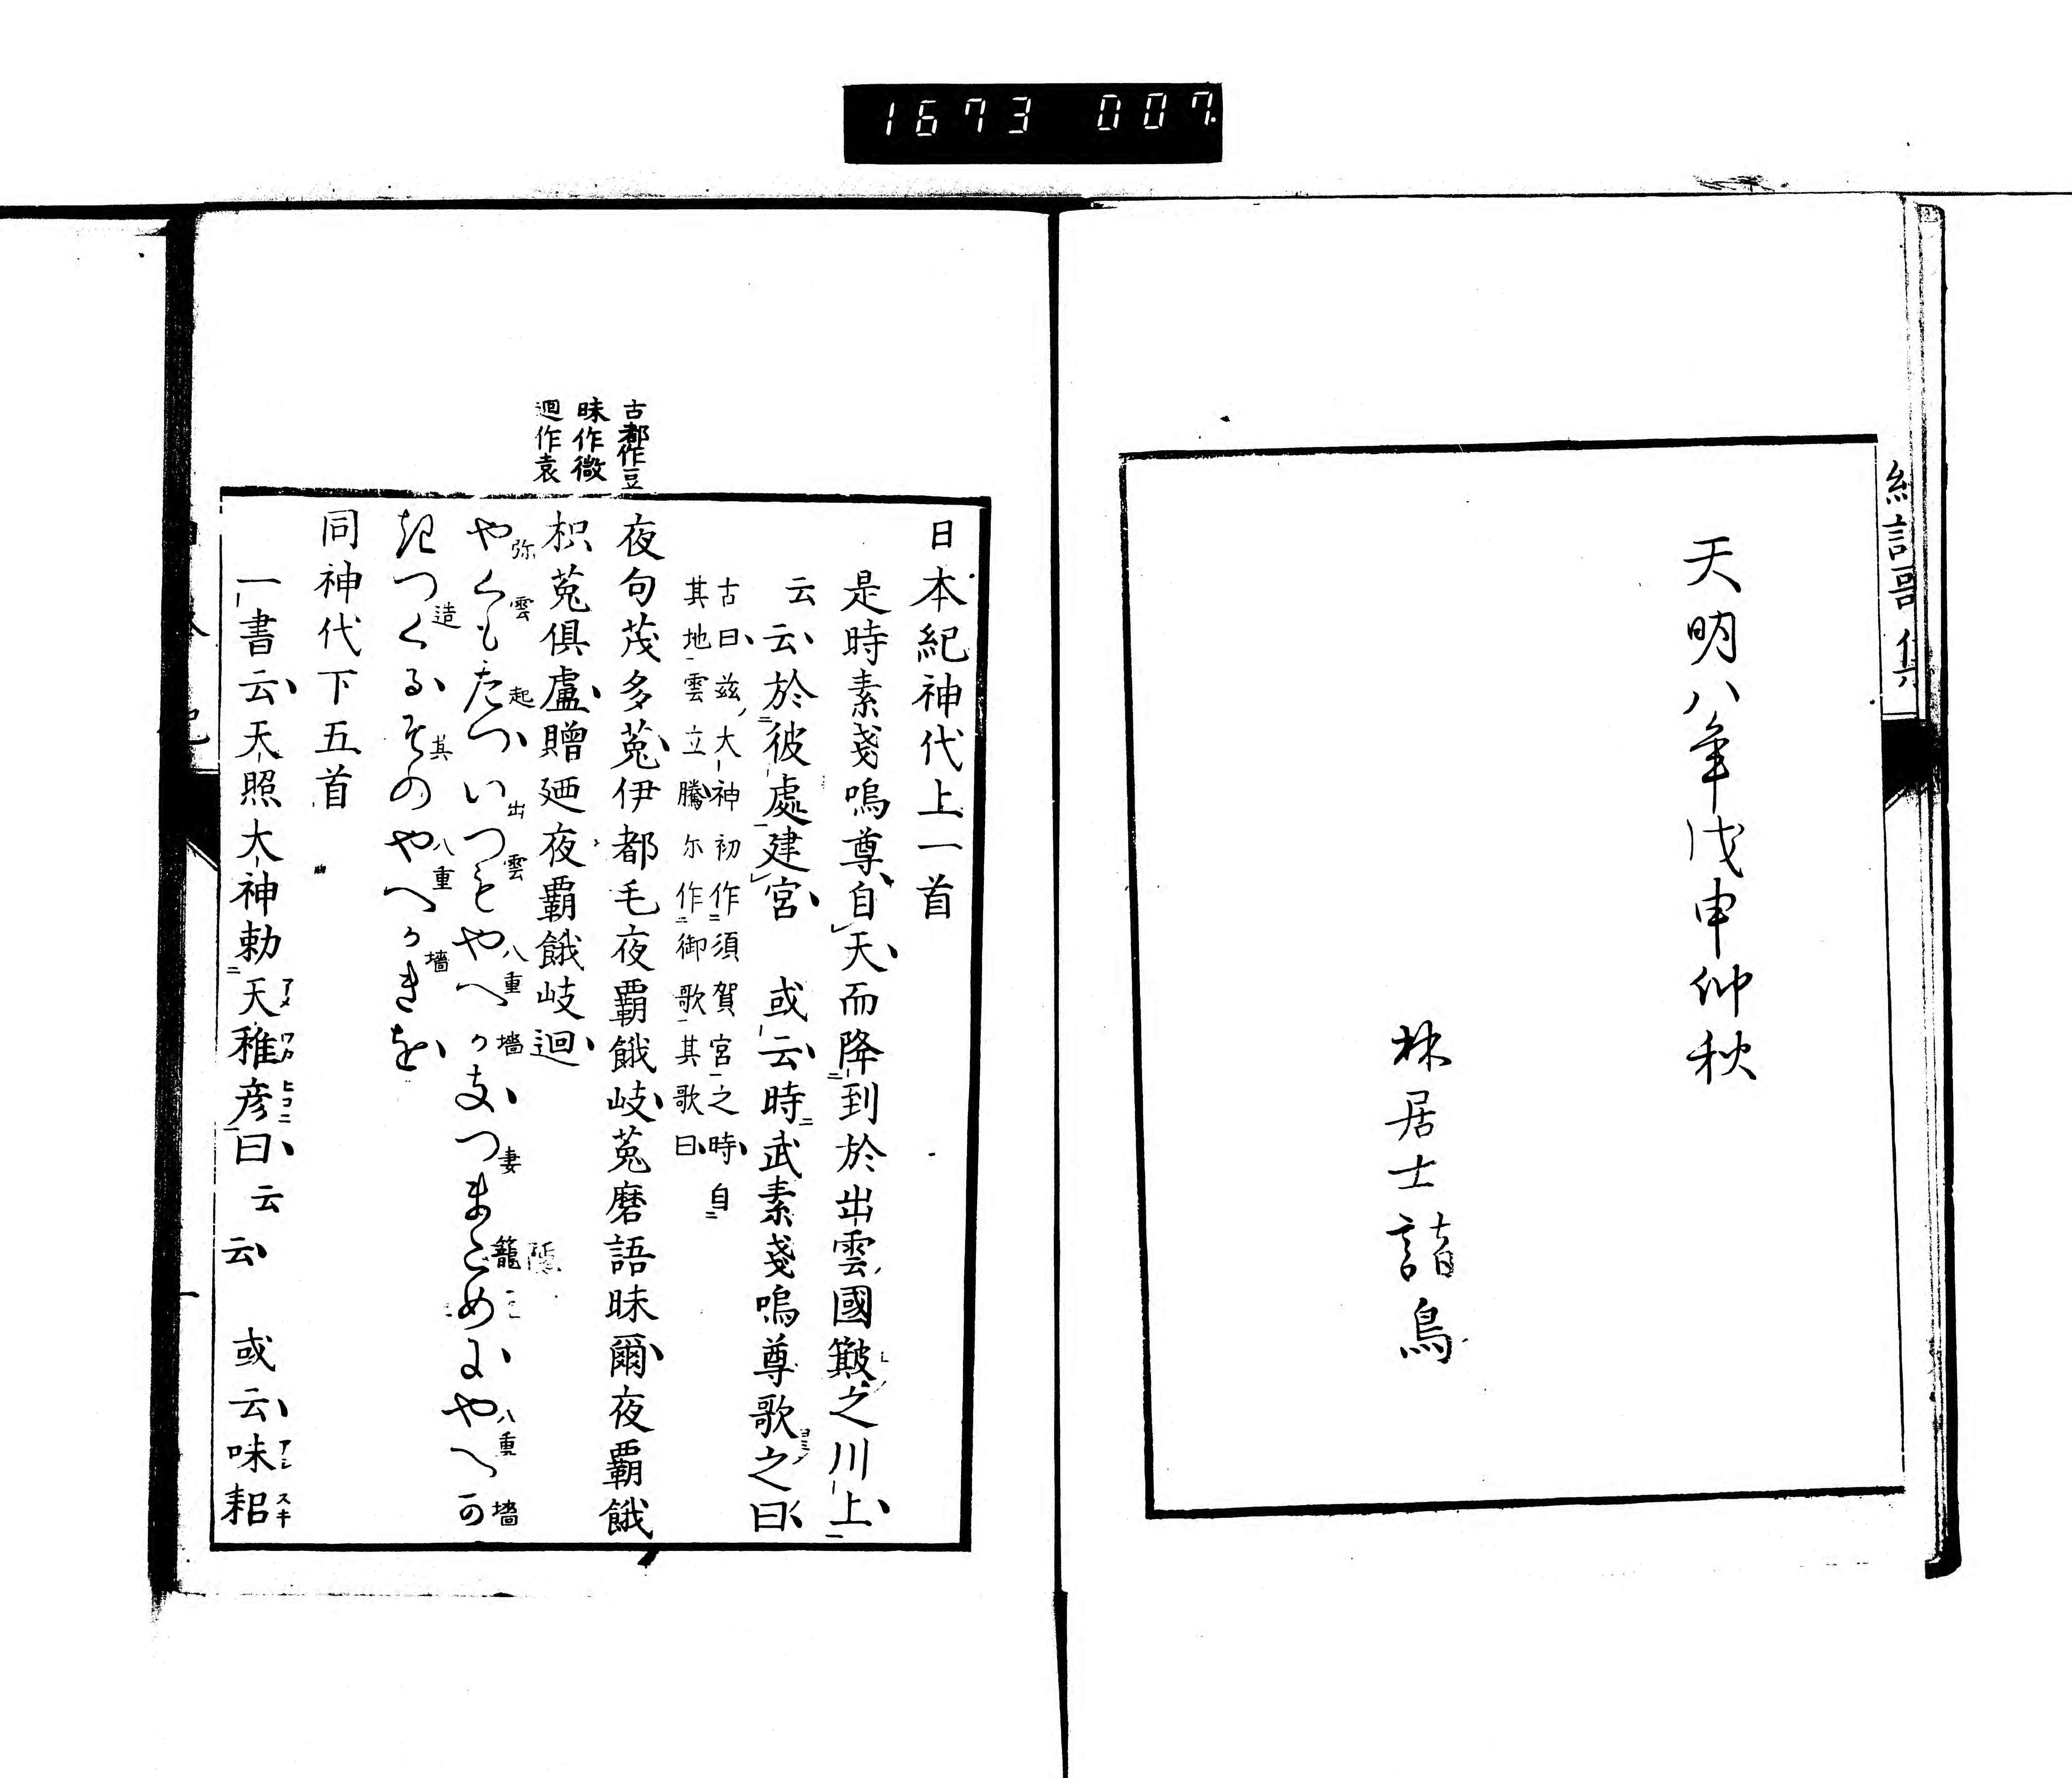 1673 007
天明八年戊申仲秋
林居士諳鳥
古都作豆
昧作微
迴作袁
日本紀神代上一首
是時素戔嗚尊自天而降到於出雲國簸之川上
云云於彼處建宮 或云時武素戔嗚尊歌之曰
古曰茲大神初作須賀宮之時自
其地雲立騰尓作御歌其歌曰
夜句茂多菟伊都毛夜覇餓岐菟磨語昧爾夜覇餓
枳菟倶盧贈廼夜覇餓岐迴
やくもたついつもやへかきつまこめにやへか
弥 雲 起 出 雲 八重 墻 妻 籠 八重 墻
きつくるそのやへかきを
造 其 八重 墻
同神代下五首
一書云天照大神勅天稚彦曰云云 或云味耜
アメ ワカ ヒコニ アシ スキ